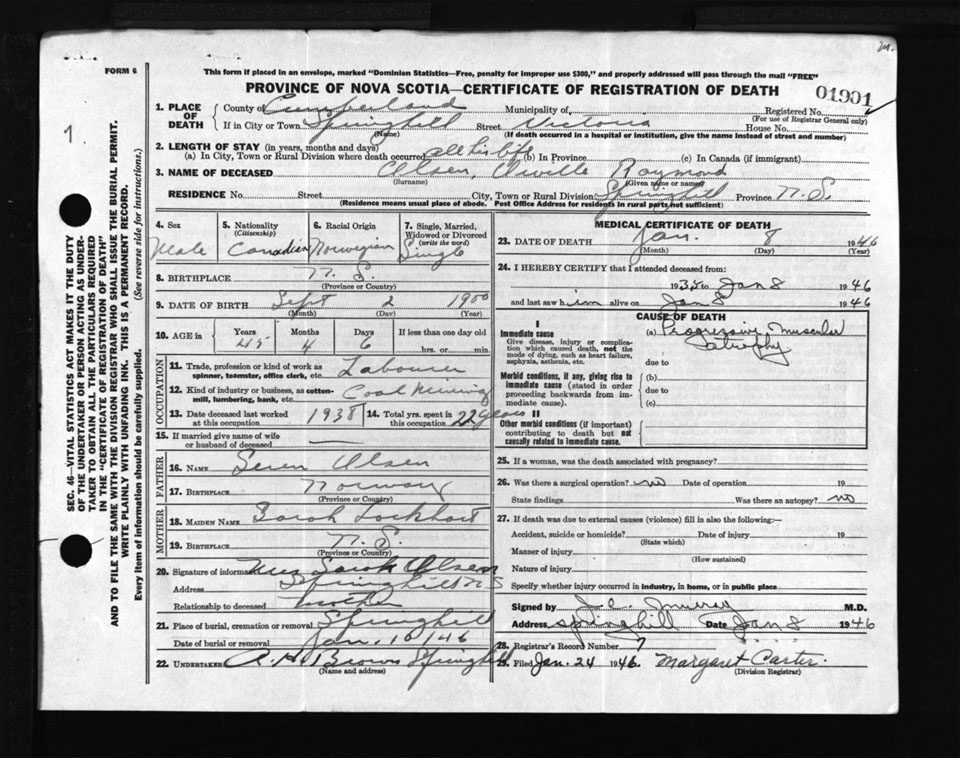 FORM 6
1
This form if placed in an envelope, marked "Dominion Statistics—Free, penalty for improper use $300," and properly addressed will pass through the mail "FREE"
PROVINCE OF NOVA SCOTIA—CERTIFICATE OF REGISTRATION OF DEATH
01901
SEC. 46—VITAL STATISTICS ACT MAKES IT THE DUTY
OF THE UNDERTAKER OR PERSON ACTING AS UNDER-
TAKER TO OBTAIN ALL THE PARTICULARS REQUIRED
IN THE "CERTIFICATE OF REGISTRATION OF DEATH"
AND TO FILE THE SAME WITH THE DIVISION REGISTRAR WHO SHALL ISSUE THE BURIAL PERMIT.
WRITE PLAINLY WITH UNFADING INK. THIS IS A PERMANENT RECORD.
Every item of information should be carefully supplied. (See reverse side for instructions.)
1. PLACE OF DEATH County of Cumberland Municipality of Registered No.
(For use of Registrar General only)
If in City or Town Springhill Street Victoria House No.
(Name) (If death occurred in a hospital or institution, give the name instead of street and number)
2. LENGTH OF STAY (in years, months and days)
(a) In City, Town or Rural Division where death occurred all his life (b) In Province (c) In Canada (if immigrant)
3. NAME OF DECEASED Olsen, Orville Raymond
(Surname) (Given name or names)
RESIDENCE No. Street City, Town or Rural Division Springhill Province N.S.
(Residence means usual place of abode. Post Office Address for residents in rural parts not sufficient)
4. Sex Male
5. Nationality (Citizenship) Canadian
6. Racial Origin Norwegian
7. Single, Married, Widowed or Divorced (write the word) Single
8. BIRTHPLACE N. S.
(Province or Country)
9. DATE OF BIRTH Sept 2 1900
(Month) (Day) (Year)
10. AGE in Years 45 Months 4 Days 6 If less than one day old hrs. or min.
OCCUPATION
11. Trade, profession or kind of work as spinner, teamster, office clerk, etc. Labourer
12. Kind of industry or business, as cotton-mill, lumbering, bank, etc. Coal Mining
13. Date deceased last worked at this occupation 1938 14. Total yrs. spent in this occupation 22 years
15. If married give name of wife or husband of deceased
FATHER
16. NAME Seven Olsen
17. BIRTHPLACE Norway
(Province or Country)
MOTHER
18. MAIDEN NAME Sarah Lockhart
19. BIRTHPLACE N. S.
(Province or Country)
20. Signature of informant Mrs Sarah Olsen
Address Springhill N S
Relationship to deceased mother
21. Place of burial, cremation or removal Springhill
Date of burial or removal Jan. 10 /46
22. UNDERTAKER A. H. Brown Springhill
(Name and address)
MEDICAL CERTIFICATE OF DEATH
23. DATE OF DEATH Jan. 8 1946
(Month) (Day) (Year)
24. I HEREBY CERTIFY that I attended deceased from:
1935 to Jan 8 1946
and last saw him alive on Jan 8 1946
CAUSE OF DEATH
I
Immediate cause (a) Progressive Muscular Atrophy
Give disease, injury or complication which caused death, not the mode of dying, such as heart failure, asphyxia, asthenia, etc. due to
Morbid conditions, if any, giving rise to immediate cause (stated in order proceeding backwards from immediate cause). (b)
due to
(c)
II
Other morbid conditions (if important) contributing to death but not causally related to immediate cause.
25. If a woman, was the death associated with pregnancy?
26. Was there a surgical operation? no Date of operation 19
State findings Was there an autopsy? no
27. If death was due to external causes (violence) fill in also the following:—
Accident, suicide or homicide? Date of injury 19
(State which)
Manner of injury
(How sustained)
Nature of injury
Specify whether injury occurred in industry, in home, or in public place
Signed by J. C. Murray M.D.
Address Springhill Date Jan 8 1946
28. Registrar's Record Number 7
29. Filed Jan. 24 1946. Margaret Carter.
(Division Registrar)